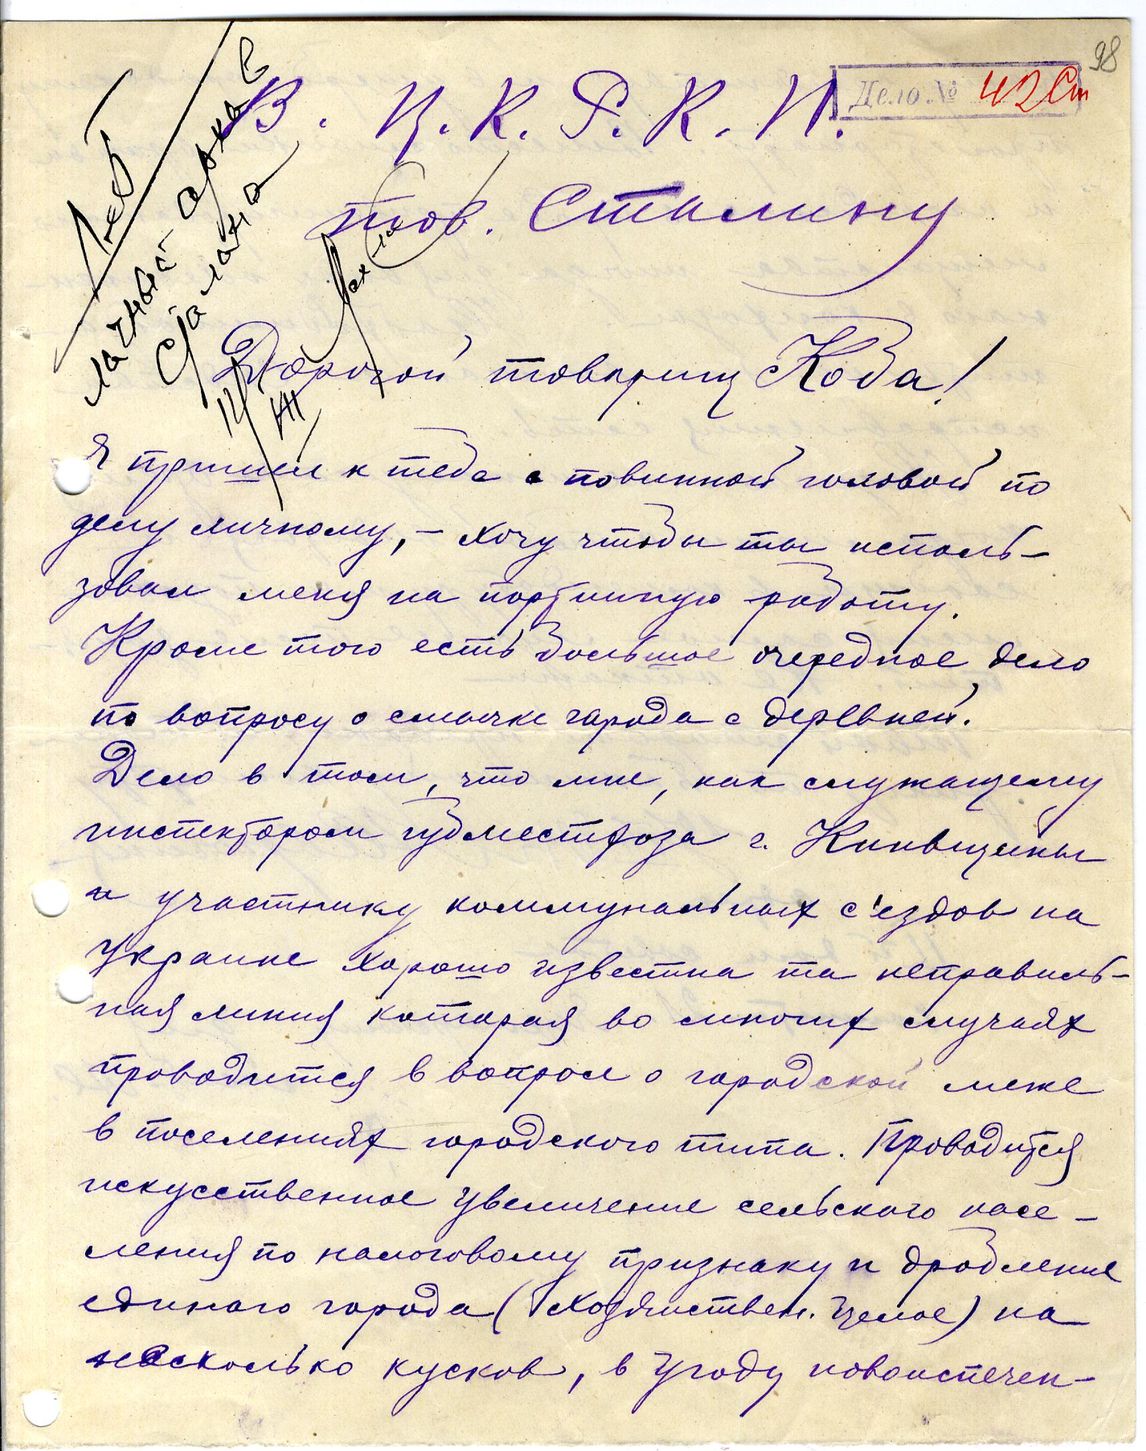 98
Дело № 42 Ст
В. Ц. К. Р. К. П.
тов. Сталину
личный архив
Сталина
Дорогой товарищ Коба!
Я пришел к тебе с повинной головой по
делу личному, – хочу чтобы ты исполь-
зовал меня на партийную работу.
Кроме того есть большое очередное дело
по вопросу о смычке города с деревней.
Дело в том, что мне, как служащему
инспектором губместхоза г. Киевщины
и участнику коммунальных с'ездов на
Украине хорошо известна та неправиль-
ная линия которая во многих случаях
проводится в вопросе о городской меже
в поселениях городского типа. Проводится
искусственное увеличение сельского насе-
ления по налоговому признаку и дробление
единого города (хозяйствен. целое) на
несколько кусков, в угоду новоиспечен-